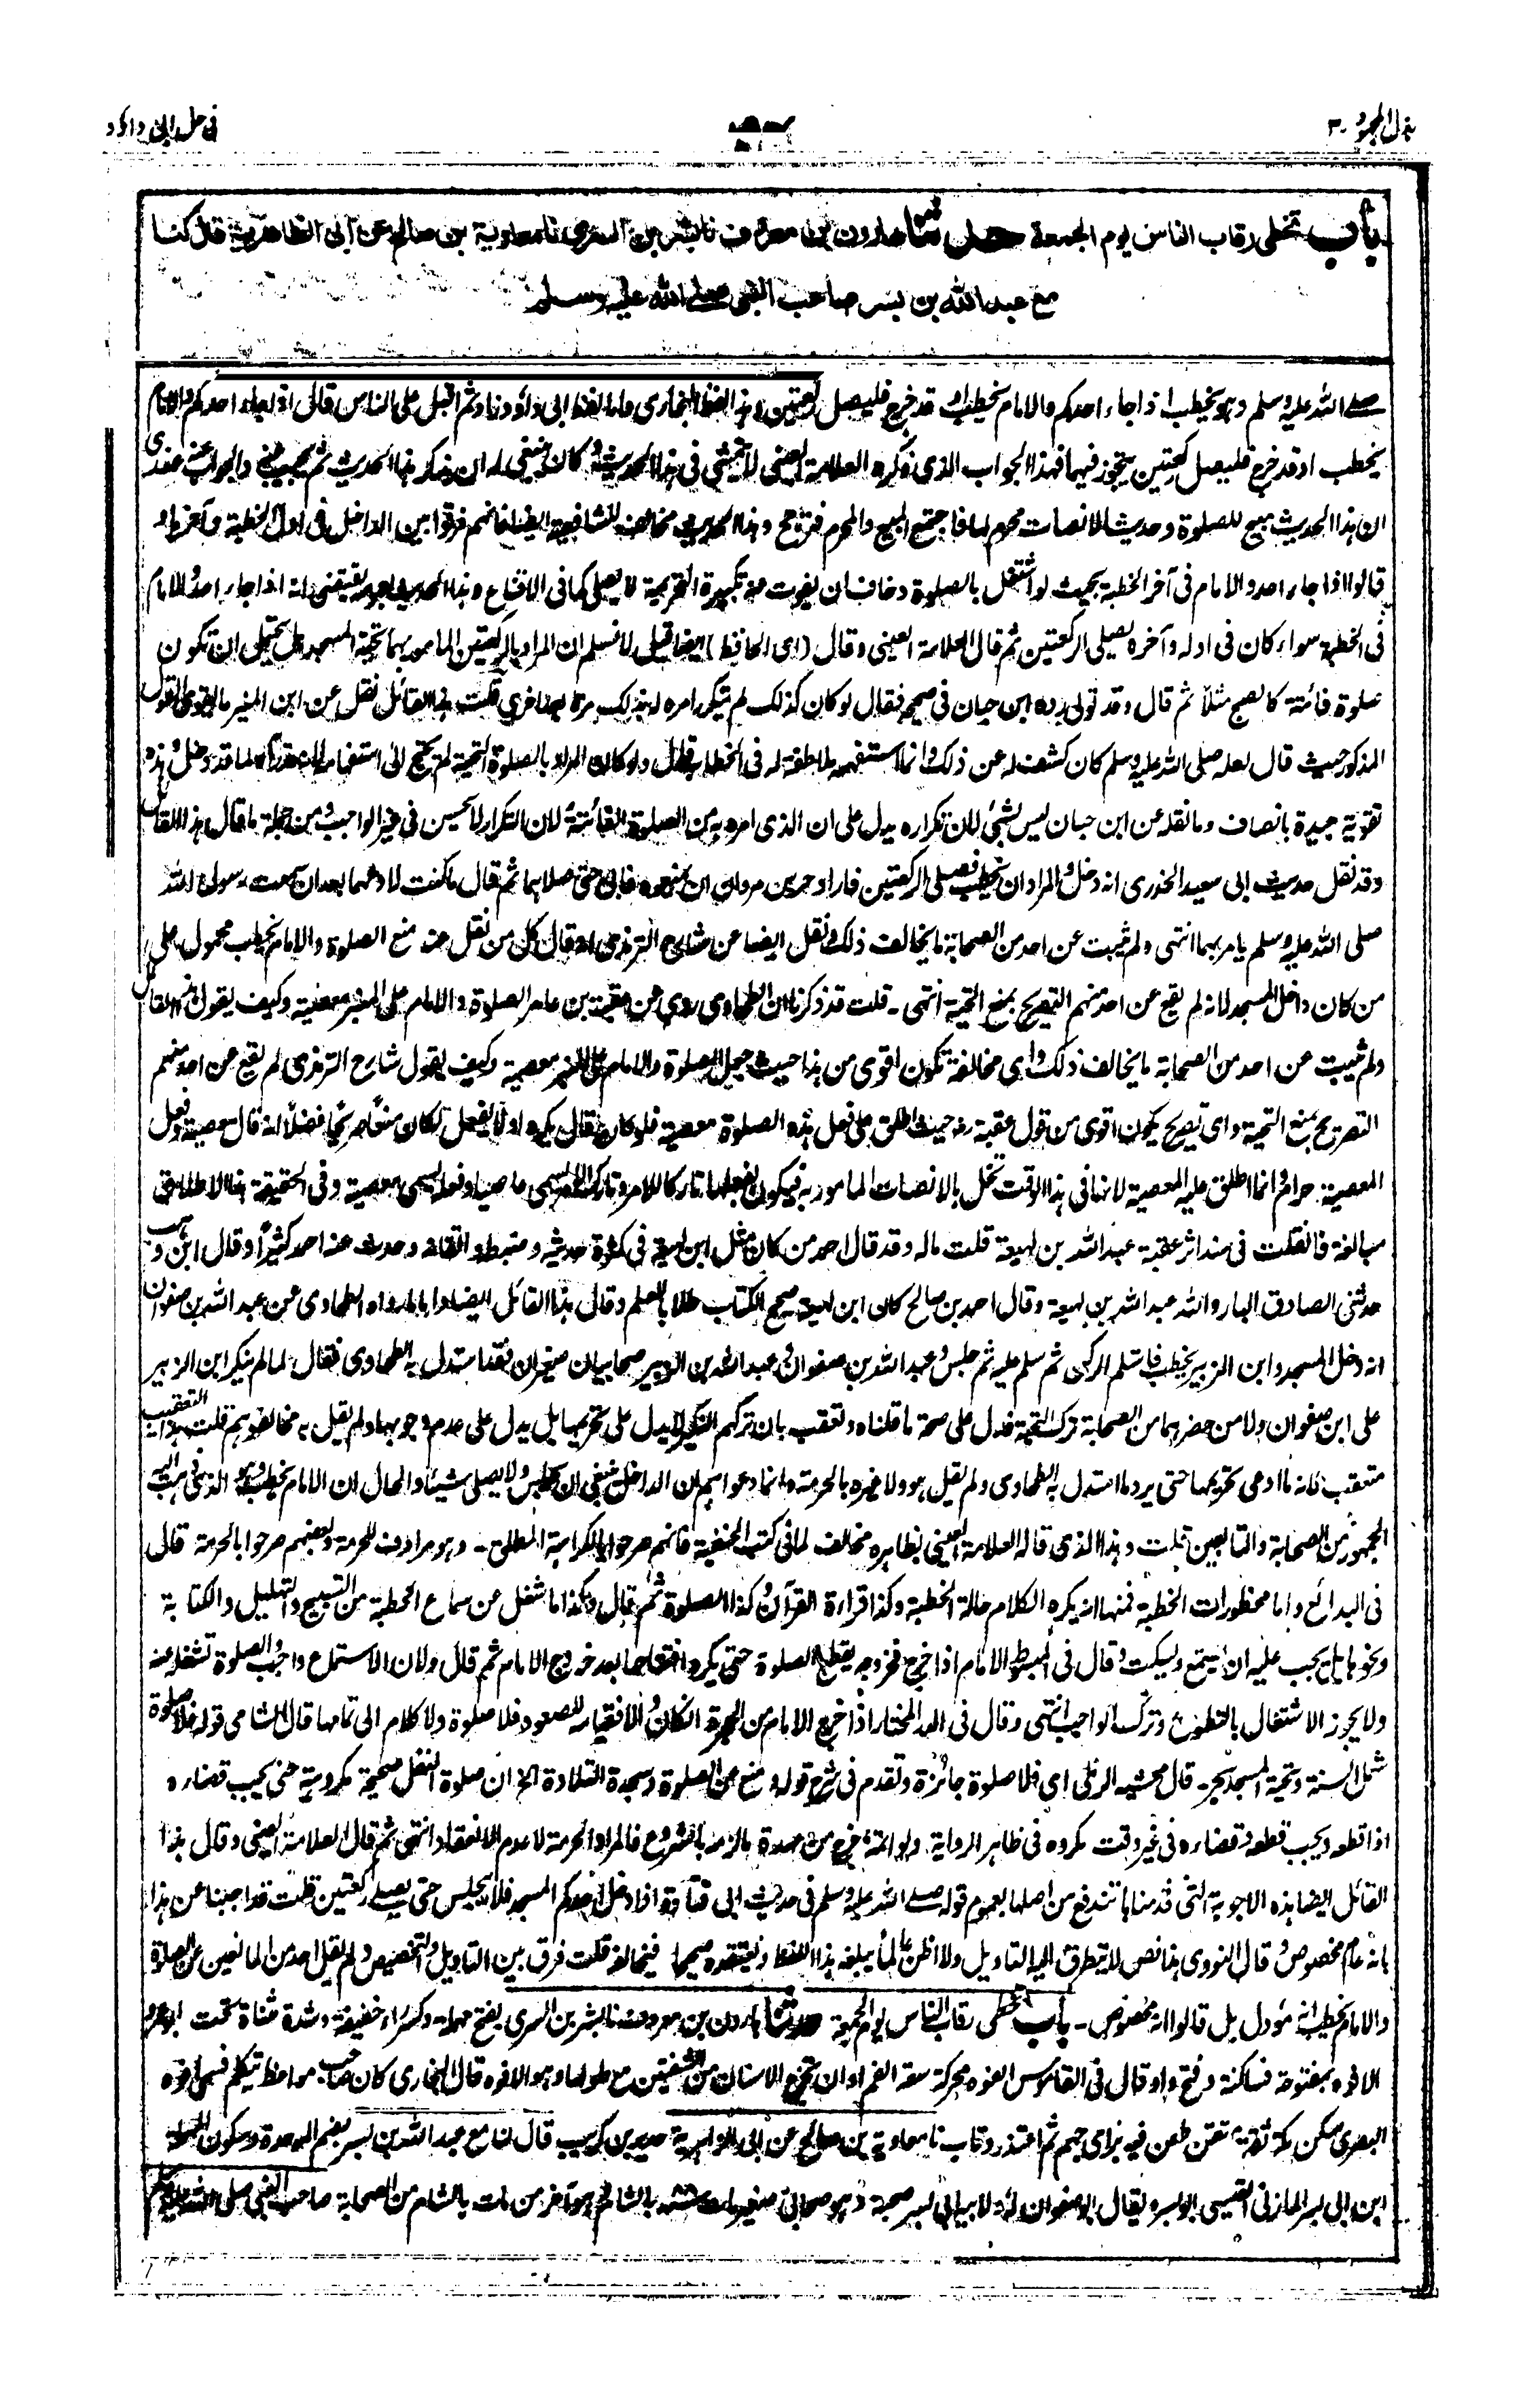 بذل المجهود ٣
في حل ابي داؤد
باب تخطى رقاب الناس يوم الجمعة حدثنا هارون بن معروف نا بشر بن السرى نا معاوية بن صالح عن أبى الزاهرية قال كنا
مع عبد الله بن بسر صاحب النبى صلے الله عليه وسلم
صلے الله عليه وسلم وهو يخطب اذا جاء احدكم والامام يخطب او قد خرج فليصل ركعتين هذا لفظ البخارى واما لفظ ابى داؤد زاد ثم اقبل على الناس قال اذا جاء احدكم والامام
يخطب او قد خرج فليصل ركعتين يتجوز فيهما فهذا الجواب الذى ذكره العلامة العينى لا يتمشى فى هذا الحديث وكان ينبغى له ان يذكر هذا الحديث ثم يجيب عنه والجواب عنه عندى
ان هذا الحديث مبيح للصلوة وحديث الانصات محرم لها فاجتمع المبيح والمحرم فترجح وهذا الحديث مخالف للشافعية ايضا فانهم فرقوا بين الداخل فى اول الخطبة وآخرها
قالوا اذا جاء احد والامام فى آخر الخطبة بحيث لو اشتغل بالصلوة وخاف ان يفوت منه تكبيرة التحريمة لا يصلى كما فى الاقناع وهذا الحديث يقتضى انه اذا جاء احد والامام
فى الخطبة سواء كان فى اوله وآخره يصلى الركعتين ثم قال العلامة العينى وقال (اى الحافظ) ايضا قيل لا نسلم ان المراد بالركعتين المامور بهما تحية المسجد بل يحتمل ان تكون
صلوة فائتة كالصبح مثلا ثم قال وقد تولى رده ابن حبان فى صحيحه فقال لو كان كذلك لم يتكرر امره له بذلك مرة بعد اخرى قلت هذا القائل نقل عن ابن المنير ما يقوى القول
المذكور حيث قال لعله صلى الله عليه وسلم كان كشف له عن ذلك وانما استفهمه ملاطفة له فى الخطاب قال ولو كان المراد بالصلوة التحية لم يحتج الى استفهامه لانه قد رآه لما قد دخل وهذه
تقوية جيدة بانصاف وما نقله عن ابن حبان ليس بشئ لان تكراره يدل على ان الذى امره به من الصلوة الفائتة لان التكرار لا يحسن فى غير الواجب ومن جملة ما قال هذا القائل
وقد نقل حديث ابى سعيد الخدرى انه دخل ومروان يخطب فصلى الركعتين فاراد حرس مروان ان يمنعوه فابى حتى صلاهما ثم قال ما كنت لادعهما بعد ان سمعت رسول الله
صلى الله عليه وسلم يامر بهما انتهى ولم يثبت عن احد من الصحابة ما يخالف ذلك ونقل ايضا عن شارح الترمذى انه قال كل من نقل عنه منع الصلوة والامام يخطب محمول على
من كان داخل المسجد لانه لم يقع عن احد منهم التصريح بمنع التحية انتهى ـ قلت قد ذكرنا ان الطحاوى روى عن عقبة بن عامر الصلوة والامام على المنبر معصية وكيف يقول هذا القائل
ولم يثبت عن احد من الصحابة ما يخالف ذلك واى مخالفة تكون اقوى من هذا حيث جعل الصلوة والامام على المنبر معصية وكيف يقول شارح الترمذى لم يقع عن احد منهم
التصريح بمنع التحية واى تصريح يكون اقوى من قول عقبة حيث اطلق على فعل هذه الصلوة معصية فلو كان قال يكره او لا يفعل لكان منعا صريحا فضلا انه قال معصية وفعل
المعصية حرام وانما اطلق عليه المعصية لانها فى هذا الوقت تخل بالانصات المامور به فيكون بفعلها تاركا للامر وتارك الامر يسمى عاصيا وفعله يسمى معصية وفى الحقيقة هذا الاطلاق
مبالغة فان قلت فى سند اثر عقبة عبد الله بن لهيعة قلت ماله وقد قال احمد من كان مثل ابن لهيعة فى كثرة حديثه وضبطه واتقانه وحدث عنه احمد كثيرا وقال ابن وهب
حدثنى الصادق البار والله عبد الله بن لهيعة وقال احمد بن صالح كان ابن لهيعة صحيح الكتاب طلابا للعلم وقال هذا القائل ايضا واما ما رواه الطحاوى عن عبد الله بن صفوان
انه دخل المسجد وابن الزبير يخطب فاستلم الركن ثم سلم عليه ثم جلس وعبد الله بن صفوان وعبد الله بن الزبير صحابيان صغيران فقد استدل به الطحاوى فقال لما لم ينكر ابن الزبير
على ابن صفوان ولا من حضرهما من الصحابة ترك التحية فدل على صحة ما قلناه وتعقب بان تركهم النكير لا يدل على تحريمها بل يدل على عدم وجوبها ولم يقل به مخالفوهم قلت هذا التعقيب
متعقب لانه ما ادعى تحريمها حتى يرد ما استدل به الطحاوى ولم يقل هو ولا غيره بالحرمة وانما دعواهم ان الداخل ينبغى ان يجلس ولا يصلى شيئا والحال ان الامام يخطب وهو الذى ذهب اليه
الجمهور من الصحابة والتابعين قلت وهذا الذى قاله العلامة العينى بظاهره مخالف لما فى كتب الحنفية فانهم صرحوا بالكراهة المطلق ـ وهو مرادف للحرمة وبعضهم صرحوا بالحرمة قال
فى البدائع واما محظورات الخطبة فمنها انه يكره الكلام حالة الخطبة وكذا قراءة القرآن وكذا الصلوة ثم قال وكذا ما شغل عن سماع الخطبة من التسبيح والتهليل والكتابة
ونحوها بل يجب عليه ان يستمع ويسكت وقال فى المبسوط الامام اذا خرج فخروجه يقطع الصلوة حتى يكره افتتاحها بعد خروج الامام ثم قال ولان الاستماع واجب والصلوة تشغله عنه
ولا يجوز الاشتغال بالتطوع وترك الواجب انتهى وقال فى الدر المختار اذا خرج الامام من الحجرة ان كان والا فقيامه للصعود فلا صلوة ولا كلام الى تمامها قال الشامى قوله فلا صلوة
شمل السنة وتحية المسجد بحر ـ قال محشيه الرملى اى فلا صلوة جائزة وتقدم فى شرح قوله ومنع عن الصلوة وسجدة التلاوة الخ ان صلوة النفل صحيحة مكروهة حتى يجب قضاءه
اذا قطعه ويجب قطعه وقضاءه فى غير وقت مكروه فى ظاهر الرواية ولو اتمه خرج من عهدة ما لزمه بالشروع فالمراد الحرمة لا عدم الانعقاد انتهى ثم قال العلامة العينى وقال هذا
القائل ايضا هذه الاجوبة التى قدمناها تندفع من اصلها بعموم قوله صلے الله عليه وسلم فى حديث ابى قتادة اذا دخل احدكم المسجد فلا يجلس حتى يصلے ركعتين قلت قد اجبنا عن هذا
بانه عام مخصوص وقال النووى هذا نص لا يتطرق اليه التاويل ولا اظن عالما يبلغه هذا اللفظ ويعتقده صحيحا فيخالفه قلت فرق بين التاويل والتخصيص ولم يقل احد من المانعين عن الصلوة
والامام يخطب انه مؤول بل قالوا انه مخصوص ـ باب تخطى رقاب الناس يوم الجمعة حدثنا هارون بن معروف نا بشر بن السرى بفتح مهملة وكسر راء خفيفة وشدة مثناة تحت ابو عمرو
الافوه بمفتوحة فساكنة وفتح واو قال فى القاموس الفوه محركة سعة الفم او ان تخرج الاسنان من الشفتين مع طولها وهو الافوه قال البخارى كان صاحب مواعظ يتكلم فسمى افوه
البصرى سكن مكة ثقة متقن طعن فيه براى جهم ثم اعتذر وتاب نا معاوية بن صالح عن ابى الزاهرية حدير بن كريب قال كنا مع عبد الله بن بسر بضم الموحدة وسكون المهملة
ابن ابى بسر المازنى القيسى ابو بسر ويقال ابو صفوان له ولابيه صحبة وهو صحابى صغير مات بالشام وهو آخر من مات بالشام من الصحابة صاحب النبى صلى الله عليه وسلم